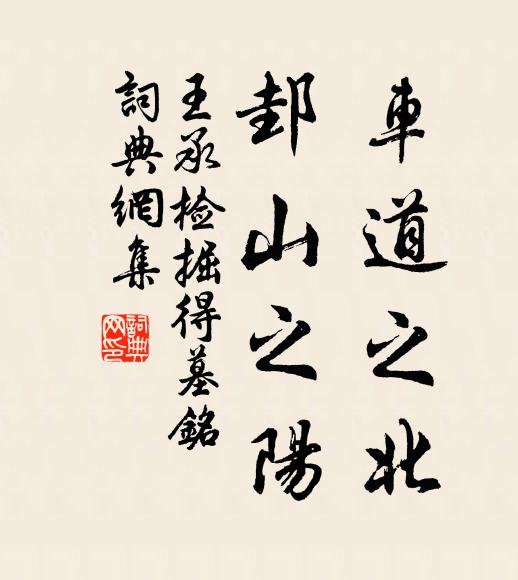 車道之北
邽山之陽
王承检掘得墓銘
詞典網集
詞典
网印